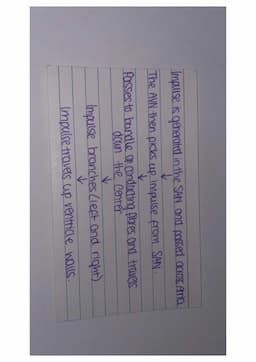 Impulse is generated in the SAN and passed across atria.
The AVN then picks up impulse from SAN.
Passes to bundle of conducting fibres and travels
down the center
Impulse branches (left and right)
Impulse travels up ventricle walls.